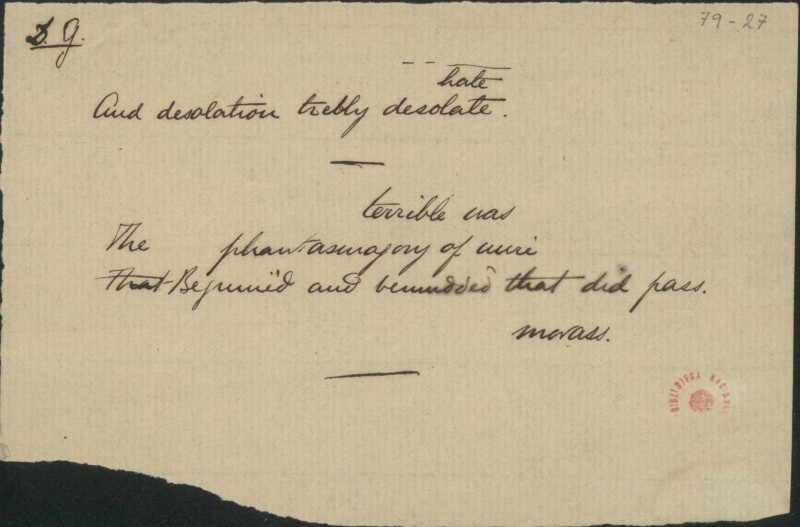 79-27
D. G.
-- — hate
And desolation trebly desolate.
terrible was
The phantasmagory of mire
That Begrimëd and bemudded that did pass.
morass.
BIBLIOTECA NACIONAL